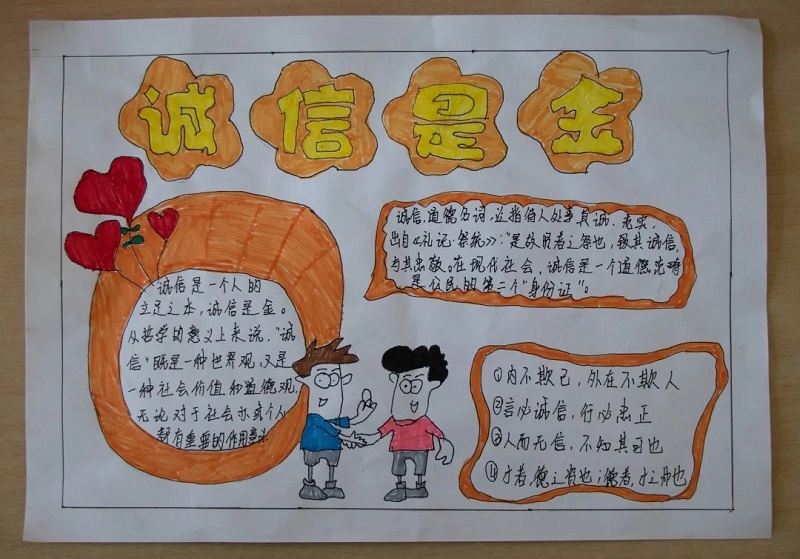 诚信是金
诚信是一个人的
立足之本,诚信是金。
从哲学的意义上来说,“诚
信”既是一种世界观,又是
一种社会价值和道德观,
无论对于社会亦或个人
都有重要的作用意义
诚信,道德名词,泛指待人处事真诚、老实,
出自《礼记·祭统》:“是故贤者之祭也,致其诚信,
与其忠敬。在现代社会,诚信是一个道德范畴
是公民的第二个“身份证”。
①内不欺己,外在不欺人
②言必诚信,行必忠正
③人而无信,不知其可也
④才者,德之资也;德者,才之帅也